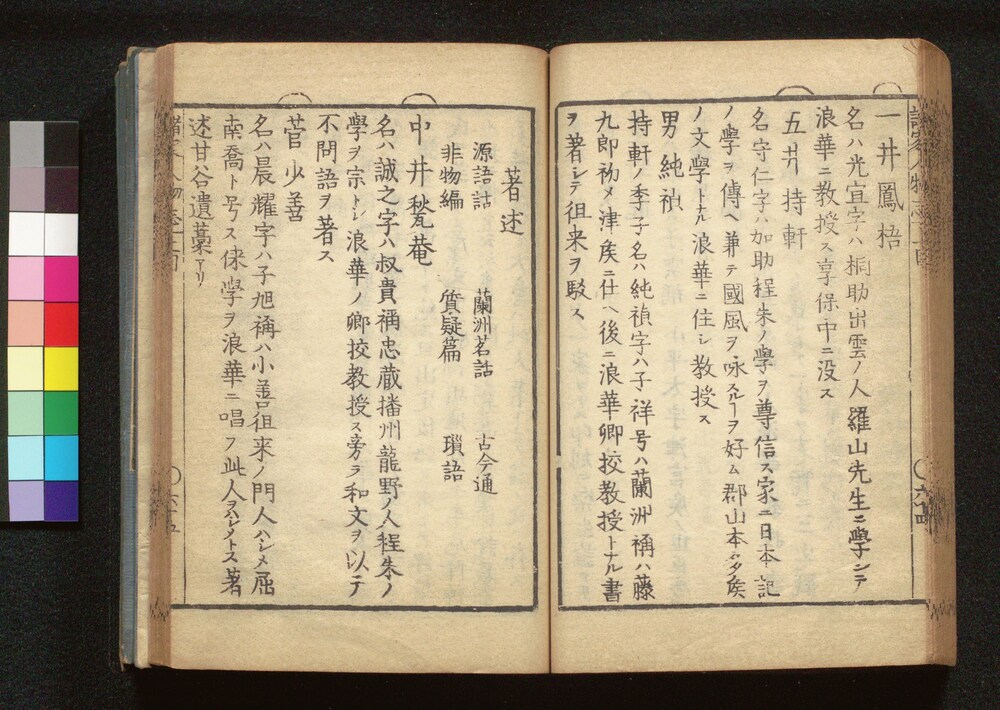 一井鳳梧
名ハ光宣字ハ桐助出雲ノ人羅山先生ニ學ンテ
浪華ニ教授ス享保中ニ没ス
五井持軒
名守仁字ハ加助程朱ノ學ヲ尊信ス家ニ日本記
ノ學ヲ傳ヘ兼テ國風ヲ咏スルーヲ好ム郡山本多矦
ノ文學トナル浪華ニ住シ教授ス
男純禎
持軒ノ季子名ハ純禎字ハ子祥号ハ蘭洲稱ハ藤
九郎初メ津矦ニ仕ヘ後ニ浪華郷挍教授トナル書
ヲ著シテ徂来ヲ駁ス
著述
源語詁 蘭洲茗話 古今通
非物編 質疑篇 瑣語
中井甃菴
名ハ誠之字ハ叔貴稱忠蔵播州龍野ノ人程朱ノ
學ヲ宗トシ浪華ノ郷挍教授ス旁ラ和文ヲ以テ
不問語ヲ著ス
菅少善
名ハ晨耀字ハ子旭稱ハ小善徂来ノ門人ハシメ屈
南喬ト号ス俫學ヲ浪華ニ唱フ此人ヲハシメトス著
述甘谷遺藁アリ